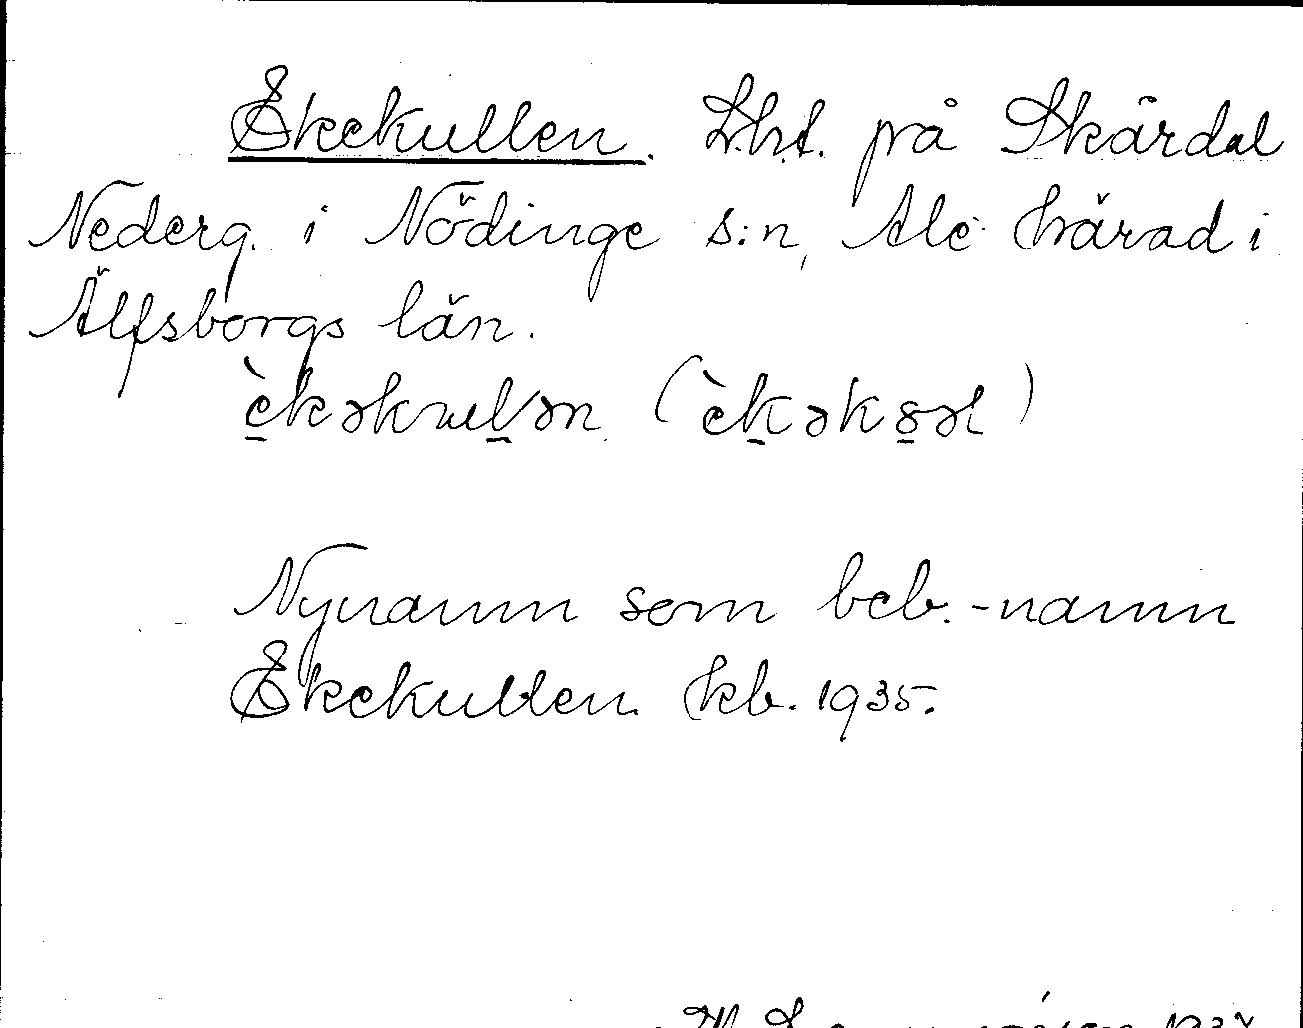 Ekekullen. Lht. på Skårdal
Nederg. i Nödinge s:n, Ale härad i
Älfsborgs län.
èkəkulən (èkəkəl)
Nynamn som beb.-namn
Ekekullen kb. 1935.